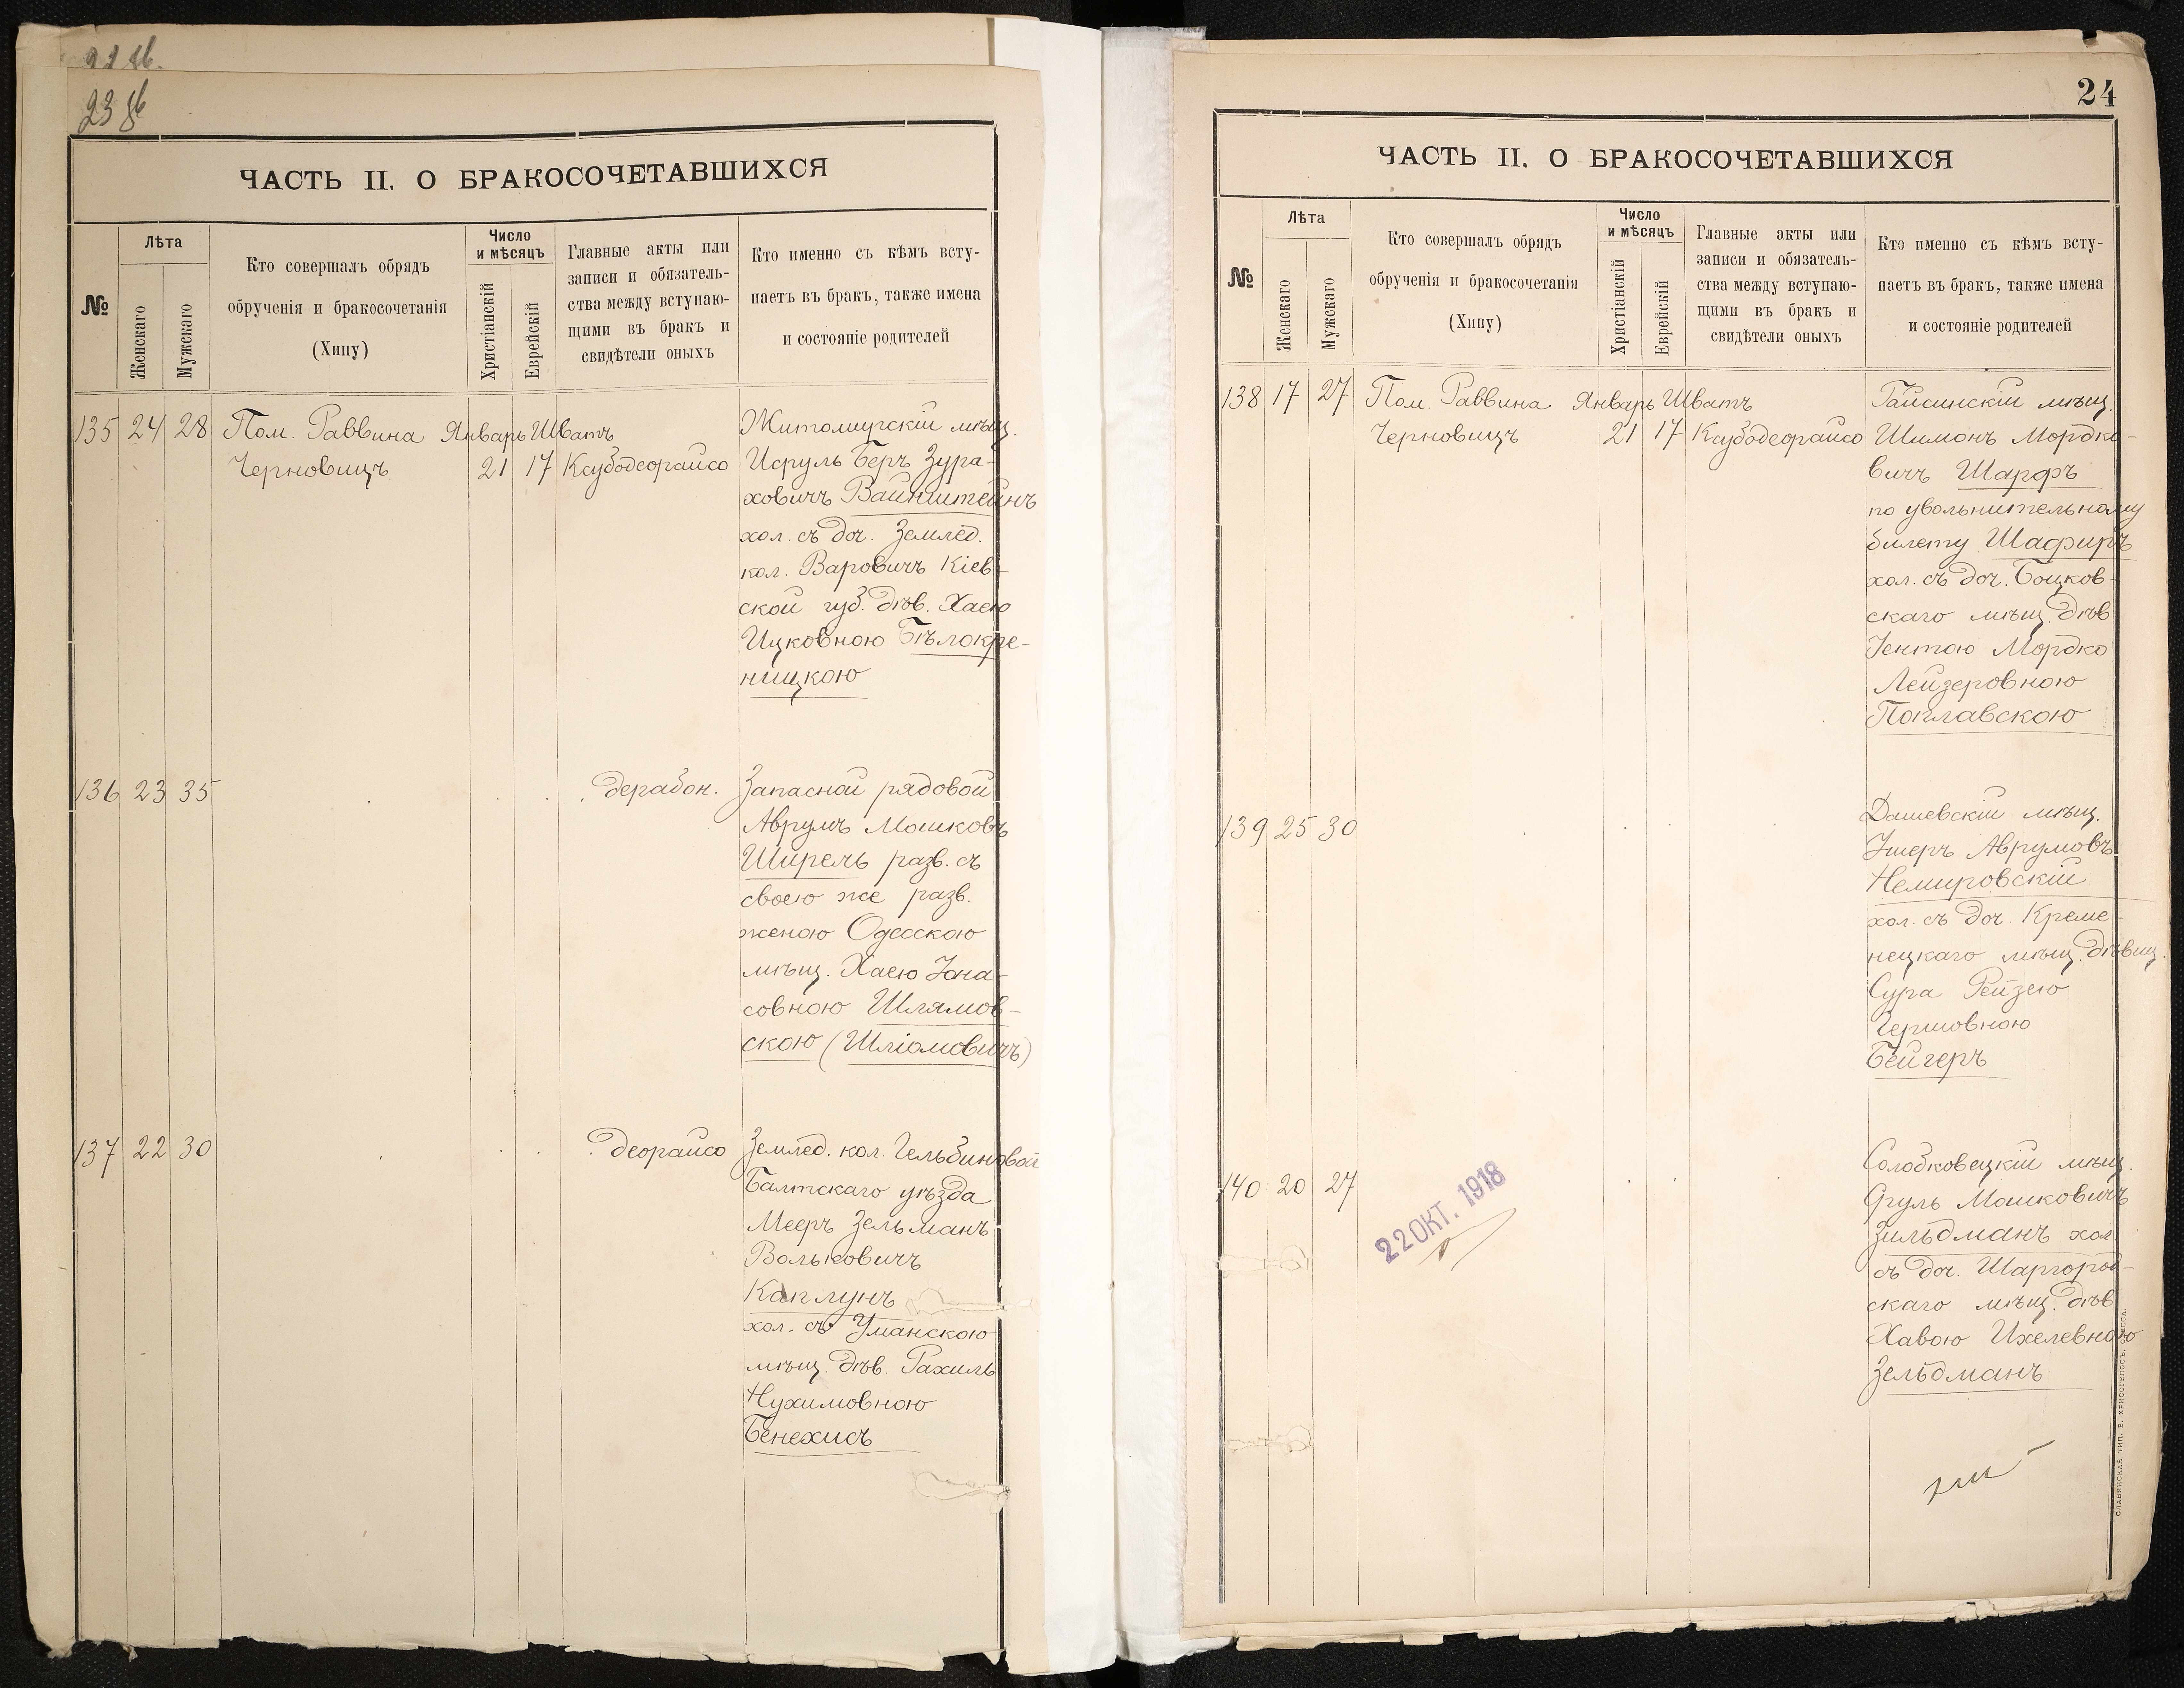 22 об.
23 об
ЧАСТЬ II. О БРАКОСОЧЕТАВШИХСЯ
№
Лѣта
Женскаго
Мужскаго
Кто совершалъ обрядъ
обрученія и бракосочетанія
(Хипу)
Число
и мѣсяцъ
Христіанскій
Еврейскій
Главные акты или
записи и обязатель-
ства между вступаю-
щими въ бракъ и
свидѣтели оныхъ
Кто именно съ кѣмъ всту-
паетъ въ бракъ, также имена
и состояніе родителей
135 24 28 Пом. Раввина Январь Шватъ Житомирскій мѣщ.
Черновицъ 21 17 Ксубодеорайсо Исруль Беръ Зура-
ховичъ Вайнштейнъ
хол. съ доч. Землед.
кол. Варовичъ Кіев-
ской губ. дѣв. Хаею
Ицковною Бѣлокре-
ницкою
136 23 35 " " " " дерабон. Запасной рядовой
Аврумъ Мошковъ
Ширель разв. съ
своею же разв.
женою Одесскою
мѣщ. Хаею Іона-
совною Шлямов-
скою (Шліомовичъ)
137 22 30 " " " " деорайсо Землед. кол. Гельбиновой
Балтскаго уѣзда
Мееръ Зельманъ
Вольковичъ
Каплунъ
хол. съ Уманскою
мѣщ. дѣв. Рахиль
Нухимовною
Бенехисъ
24
ЧАСТЬ II. О БРАКОСОЧЕТАВШИХСЯ
№
Лѣта
Женскаго
Мужскаго
Кто совершалъ обрядъ
обрученія и бракосочетанія
(Хипу)
Число
и мѣсяцъ
Христіанскій
Еврейскій
Главные акты или
записи и обязатель-
ства между вступаю-
щими въ бракъ и
свидѣтели оныхъ
Кто именно съ кѣмъ всту-
паетъ въ бракъ, также имена
и состояніе родителей
138 17 27 Пом. Раввина Январь Шватъ Гайсинскій мѣщ.
Черновицъ 21 17 Ксубодеорайсо Шимонъ Мордко-
вичъ Шарфъ
по увольнительному
билету Шафиръ
хол. съ доч. Боцков-
скаго мѣщ. дѣв
Іентою Мордко
Лейзеровною
Поплавскою
139 25 30 Дашевскій мѣщ.
Ушеръ Аврумовъ
Немировскій
хол. съ доч. Креме-
нецкаго мѣщ. дѣвиц.
Сура Рейзею
Гершовною
Бейгеръ
140 20 27 Солобковецкій мѣщ.
Сруль Мошковичъ
Зильдманъ хол
съ доч. Шаргород-
скаго мѣщ. дѣв
Хавою Ихелевною
Зельдманъ
22 ОКТ. 1918
СЛАВЯНСКАЯ ТИП. Е. ХРИСОГЕЛОСЪ, ОДЕССА.